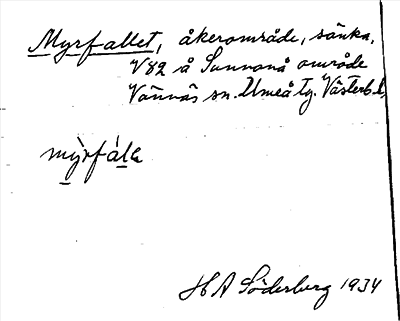 Myrfallet, åkerområde, sänka,
V82 å Sunnanå område
Vännäs sn. Umeå tg. Västerb. l.
mỳrfála
H A Söderberg 1934